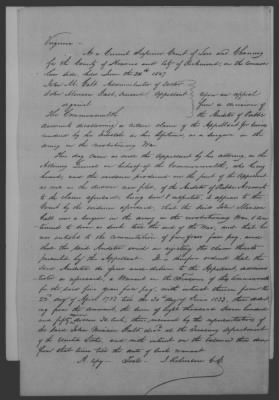 Virginia
At a Circuit Superior Court of Law and Chancery
for the County of Henrico and City of Richmond, on the common
law side, held June the 28th 1837
John M. Galt Administrator of Doctor
John Minson Galt, deceased Appellant
against
The Commonwealth
upon an appeal
from a decision of
the Auditor of Public
accounts disallowing a certain claim of the Appellant for being
rendered by his intestate in his lifetime, as a surgeon in the
army in the revolutionary War
This day came as well the Appellant by his attorney, as the
Attorney General on behalf of the Commonwealth, who being
heard, and the evidence produced on the part of the Appellant
as well as the decision now filed, of the Auditor of Public Accounts
to the claim aforesaid being seen, it appears to the
Court by the evidence aforesaid, that the said John Minson
Galt was a surgeon in the army in the revolutionary War, &
continued to serve as such till the end of the War, and that he
was entitled to the commutation of five years full pay, and
that the said Auditor erred in rejecting the claim therefor
presented by the Appellant. It is therefore ordered that the
said Auditor do issue and deliver to the Appellant
as aforesaid, a Warrant on the Treasury of the Commonwealth
for the said five years full pay, with interest thereon from the
22nd day of April 1783 till the day of June 1833, then deducting
from the amount, the sum of eight thousand seven hundred
and fifty dollars 30 cents, then received by the representatives of
the said John Minson Galt dec'd at the Treasury department
of the United States, and with interest on the balance then due
from that time till the date of such warrant
A Copy Teste J. Robinson C.C.